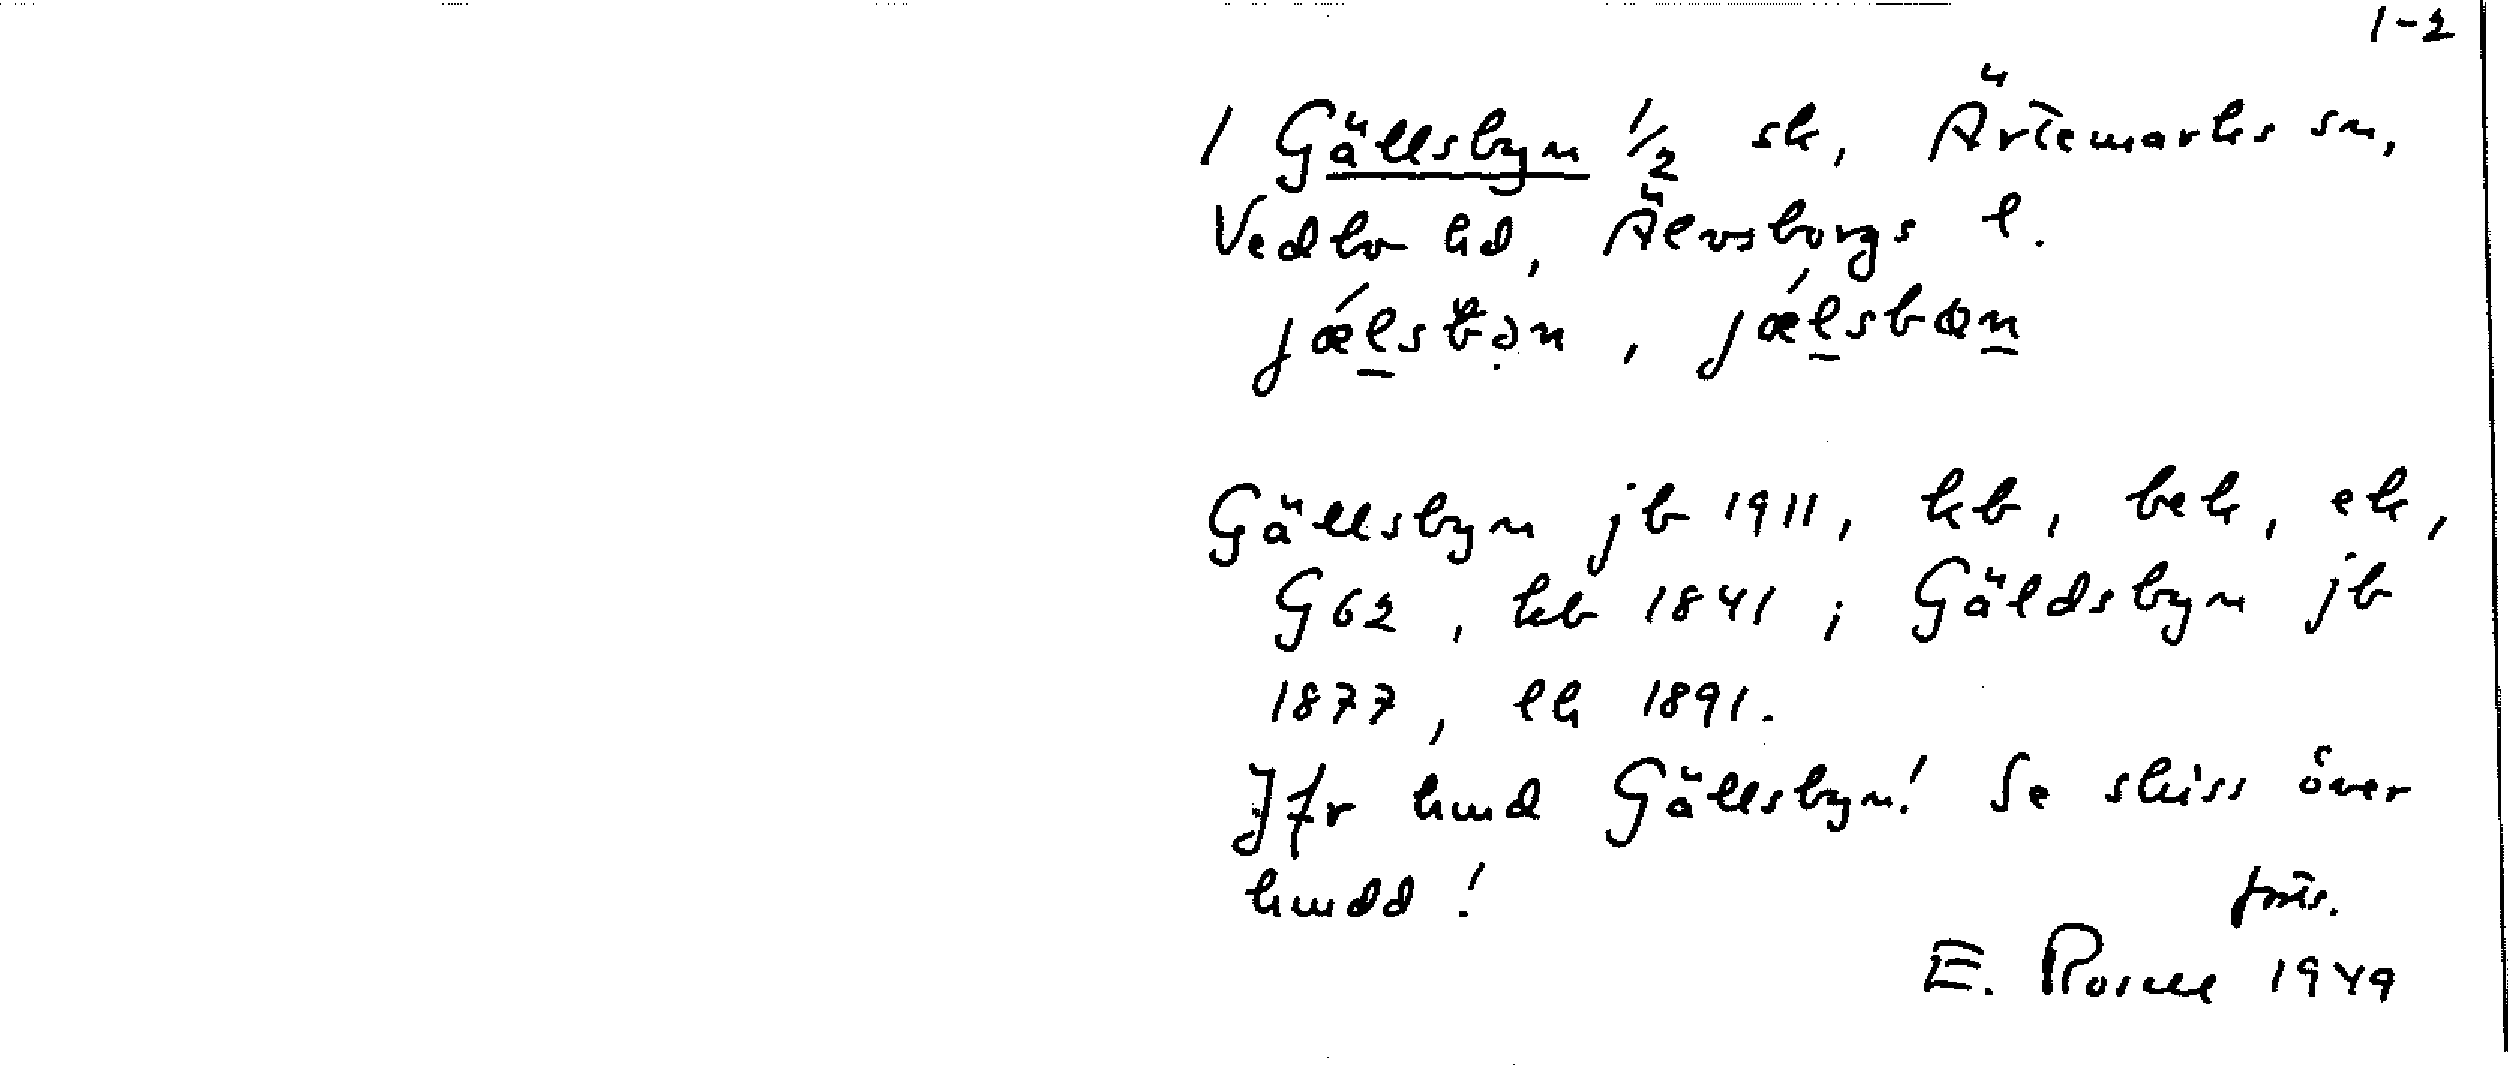 1-2
1 Gällsbyn 1/2 sk, Ärtemarks sn,
Vedbo hd, Älvsborgs l.
jǽlsbən, jǽlsbøn
Gällsbyn jb 1911, kb, bek, ek,
G62, kb 1841; Gäldsbyn jb
1877, lh 1891.
Jfr hmd Gällsbyn! Se skiss över
hmdd!
forts.
E. Rosell 1949